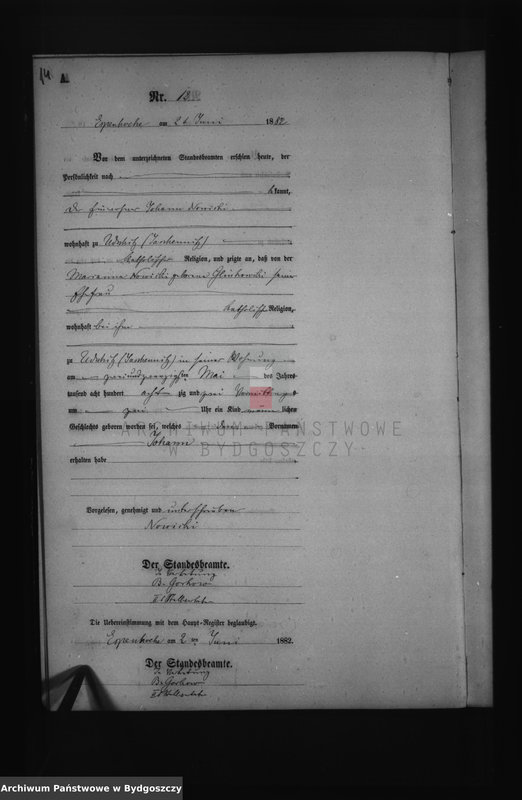 14
A
Nr. 13
Espenhöhe am 2 t Juni 1882
Vor dem unterzeichneten Standesbeamten erschien heute, der
Persönlichkeit nach
kannt,
der Einwohner Johann Nowicki
wohnhaft zu
katholischer Religion, und zeigte an, daß von der
Marianna Nowicki geborene seiner
Ehefrau
katholisch Religion,
wohnhaft bei ihm
zu in seiner Wohnung
am zweiundzwanzigsten Mai des Jahres
tausend acht hundert acht zig und zwei Vormittags
um zwei Uhr ein Kind männ lichen
Geschlechts geboren worden sei, welches den Vornamen
Johann
erhalten habe
Vorgelesen, genehmigt und unterschrieben
Nowicki
Der Standesbeamte.
In Vertretung
B. Gorkow
Die Uebereinstimmung mit dem Haupt-Register beglaubigt.
Espenhöhe am 2 ten Juni 1882.
Der Standesbeamte.
In Vertretung
B. Gorkow
ARCHIWUM PAŃSTWOWE
W BYDGOSZCZY
Archiwum Państwowe w Bydgoszczy